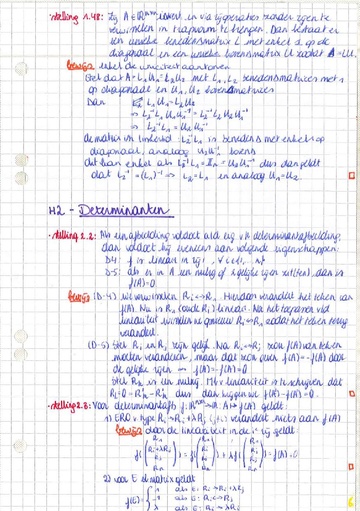 stelling 1.48: Zij A ∈ ℝ^{n×n} inverteerbaar en via rijoperaties zonder rijen te
verwisselen in trapvorm te brengen. Dan bestaat er
een unieke benedenmatrix L met enkel 1 op de
diagonaal en een unieke bovenmatrix U zodat A = LU.
bewijs enkel de uniciteit aantonen
Stel dat A = L₁U₁ = L₂U₂ met L₁, L₂ benedenmatrices met 1
op diagonaal en U₁, U₂ bovenmatrices
Dan L₁U₁ = L₂U₂
⇒ L₂⁻¹L₁U₁U₁⁻¹ = L₂⁻¹L₂U₂U₁⁻¹
⇒ L₂⁻¹L₁ = U₂U₁⁻¹
de matrix in linkerlid L₂⁻¹L₁ is beneden met enkel 1 op
diagonaal, analoog U₂U₁⁻¹ boven
dit kan enkel als L₂⁻¹L₁ = 𝕀ₙ = U₂U₁⁻¹ dus dan geldt
dat L₂⁻¹ = (L₁)⁻¹ ⇒ L₂ = L₁ en analoog U₁ = U₂
H2 - Determinanten
stelling 2.2: Als een afbeelding voldoet aan de determinantafbeelding,
dan voldoet hij eveneens aan volgende eigenschappen:
D-4: f is lineair in rij i, ∀ i ∈ {1, ..., n}
D-5: als er in A een nulrij of 2 gelijke rijen zit(ten), dan is
f(A) = 0
bewijs (D-4) we verwisselen Rᵢ ↔ R₁. Hierdoor verandert het teken van
f(A). Nu is R₁ (oude Rᵢ) lineair. Na het toepassen vd
lineariteit wisselen we opnieuw Rᵢ ↔ R₁ zodat het teken terug
verandert.
(D-5) Stel Rᵢ en Rⱼ zijn gelijk. Na Rᵢ ↔ Rⱼ zou f(A) van teken
moeten veranderen, maar dat kan geen f(A) = -f(A) door
de gelijke rijen ⇒ f(A) = -f(A) = 0
Stel Rᵢ is een nulrij. Mbv lineariteit is te schrijven dat
stelling 2.3: Voor determinantafb. f: ℝ^{n×n} → ℝ: A ↦ f(A) geldt:
1) ERO v type Rᵢ → Rᵢ + λRⱼ (j≠i) verandert niets aan f(A)
bewijs door de lineariteit in de i-rij geldt
2) voor E elmatrix geldt
f(E) = { 1 als E: Rᵢ → Rᵢ + λRⱼ
-1 als E: Rᵢ ↔ Rⱼ
λ als E: Rᵢ → λRᵢ
6